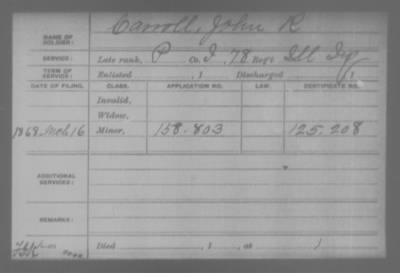 Carroll, John R
NAME OF SOLDIER:
SERVICE: Late rank, P Co. I, 78 Reg't Ill Inf
TERM OF SERVICE: Enlisted , 1 Discharged , 1
DATE OF FILING. CLASS. APPLICATION NO. LAW. CERTIFICATE NO.
Invalid,
Widow,
1868 Mch 16 Minor, 158.803 125.208
ADDITIONAL SERVICES:
REMARKS:
Died , 1 , at 1